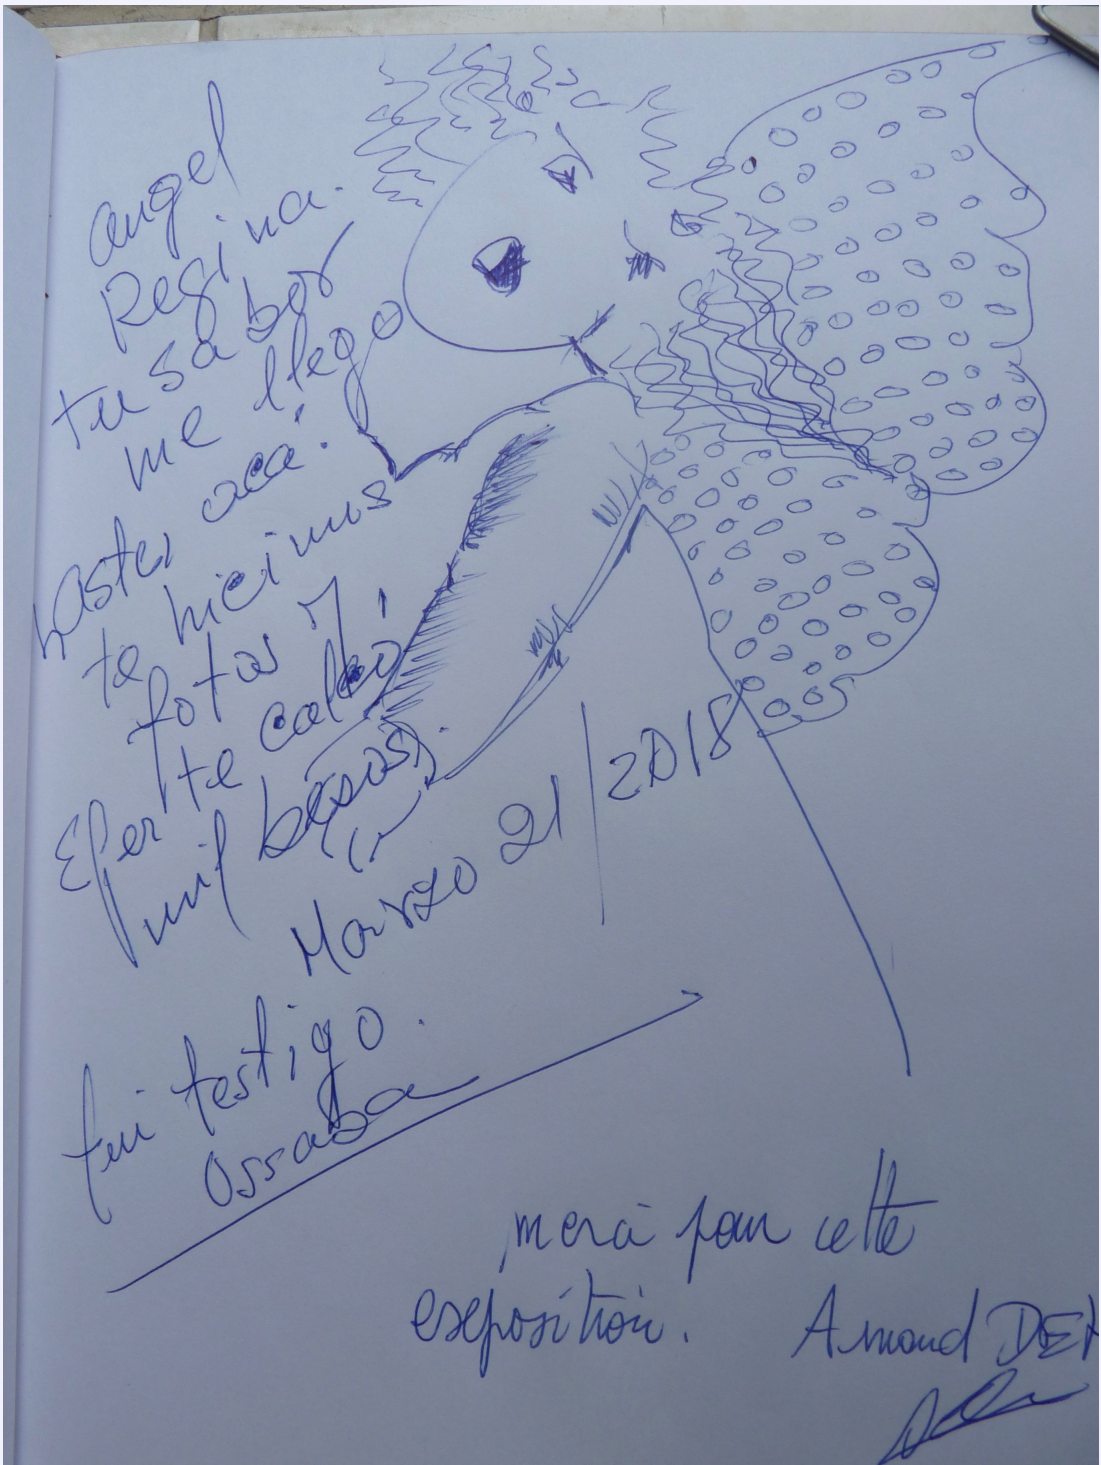 angel
Regina.
tu sabor
me llego
hasta, acá.
te hicimos
fotos y
Efer te calcó,
mil besos.
Marzo 21/2018
fui testigo.
Ossaba
merci pour cette
exposition. Arnaud